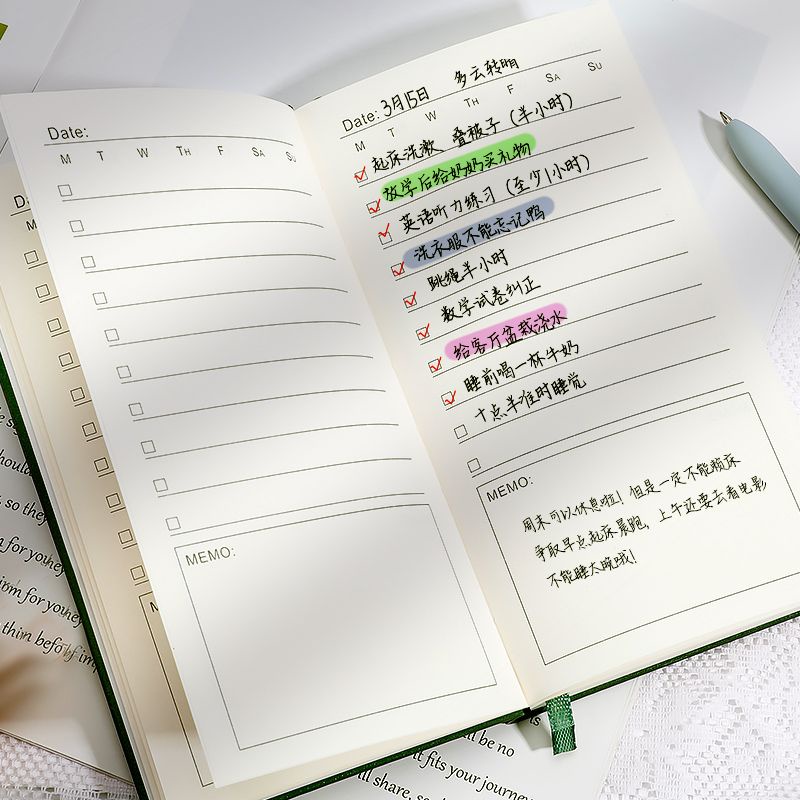 Date:
M T W TH F SA SU
MEMO:
Date: 3月15日 多云转晴
M T W TH F SA SU
起床洗漱 叠被子（半小时）
放学后给奶奶买礼物
英语听力练习（至少1小时）
洗衣服不能忘记鸭
跳绳半小时
数学试卷纠正
给客厅盆栽浇水
睡前喝一杯牛奶
十点半准时睡觉
MEMO:
周末可以休息啦！但是一定不能赖床
争取早点起床晨跑，上午还要去看电影
不能睡太晚哦！
so they
m for you
irm for you
thim befo
be no
t fits your journey
ll share, so